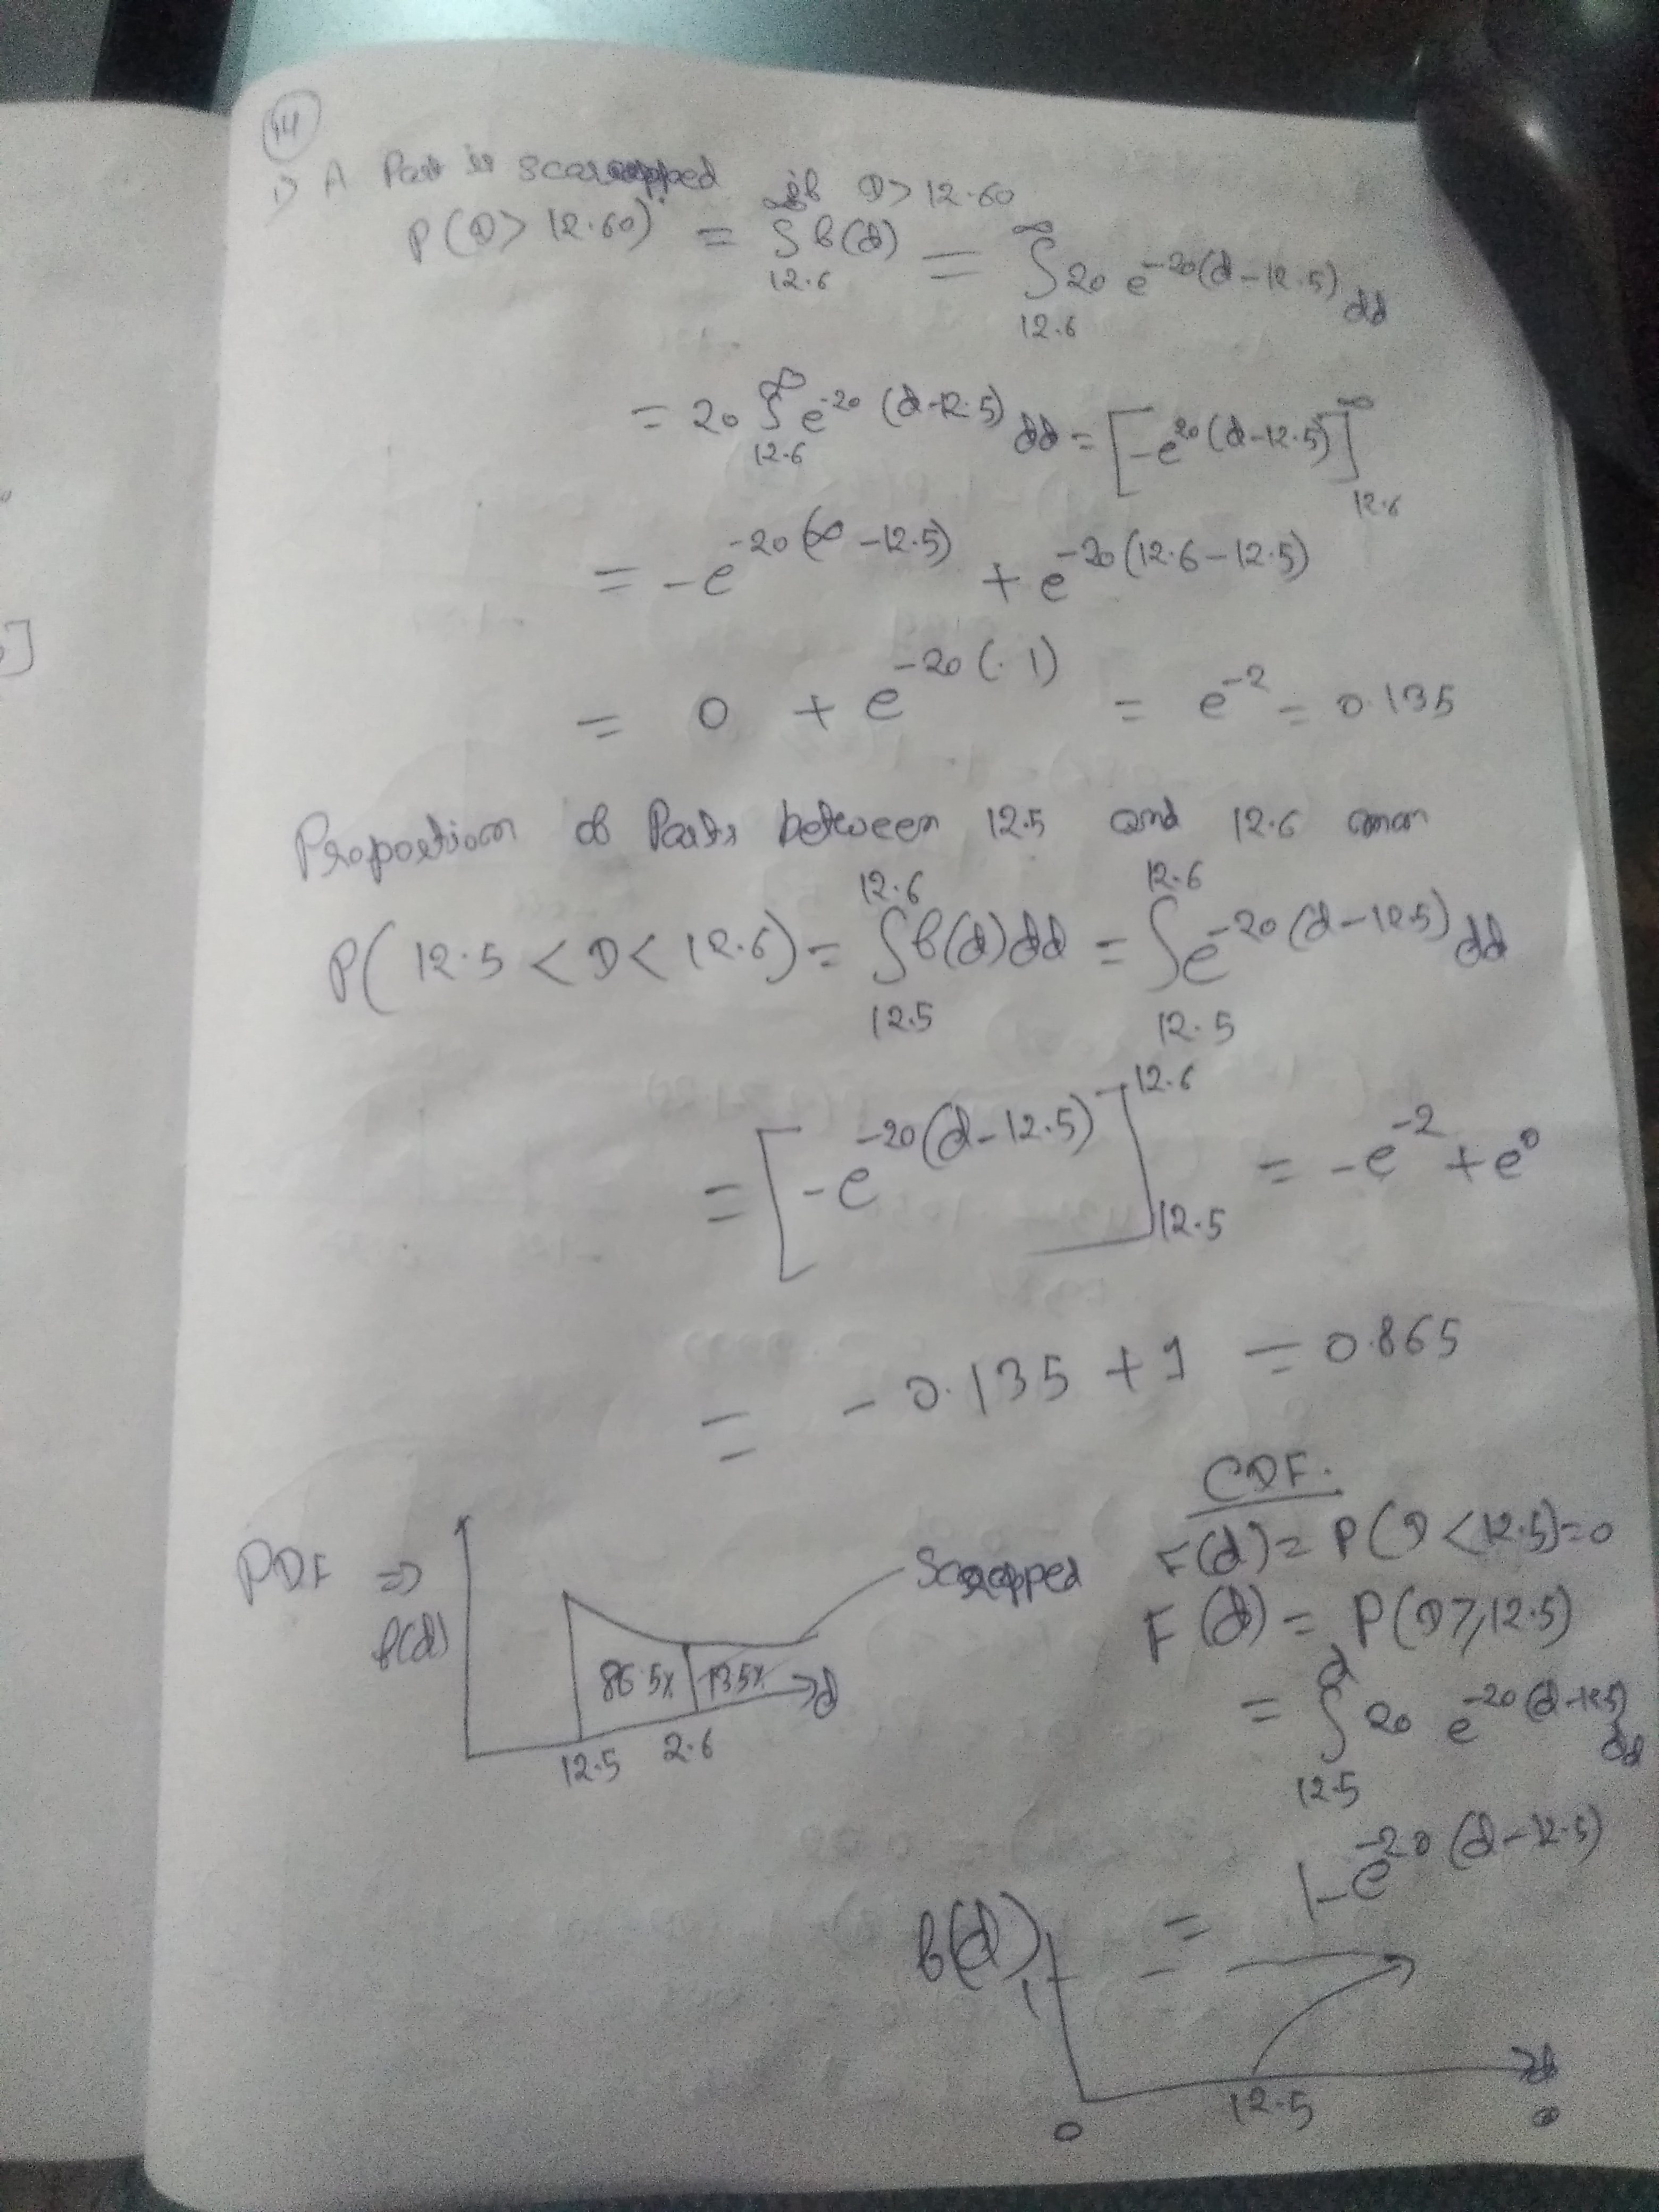 14
1) A Part is scarrapped if D > 12.60
P(D > 12.60) = ∫_{12.6}^{∞} f(d) = ∫_{12.6}^{∞} 20 e^{-20(d-12.5)} dd
= 20 ∫_{12.6}^{∞} e^{-20(d-12.5)} dd = [-e^{20(d-12.5)}]_{12.6}^{∞}
= -e^{-20(∞-12.5)} + e^{-20(12.6-12.5)}
= 0 + e^{-20(.1)} = e^{-2} = 0.135
Proportion of Parts between 12.5 and 12.6
P(12.5 < D < 12.6) = ∫_{12.5}^{12.6} f(d) dd = ∫_{12.5}^{12.6} e^{-20(d-12.5)} dd
= [-e^{-20(d-12.5)}]_{12.5}^{12.6} = -e^{-2} + e^{0}
= -0.135 + 1 = 0.865
PDF ⇒
f(d)
86.5% 13.5% d
12.5 2.6
Scrapped
CDF.
F(d) = P(D < 12.5) = 0
F(d) = P(D ≥ 12.5)
= ∫_{12.5}^{d} 20 e^{-20(d-12.5)} dd
= 1 - e^{-20(d-12.5)}
f(d)
1
d
0 12.5
5]